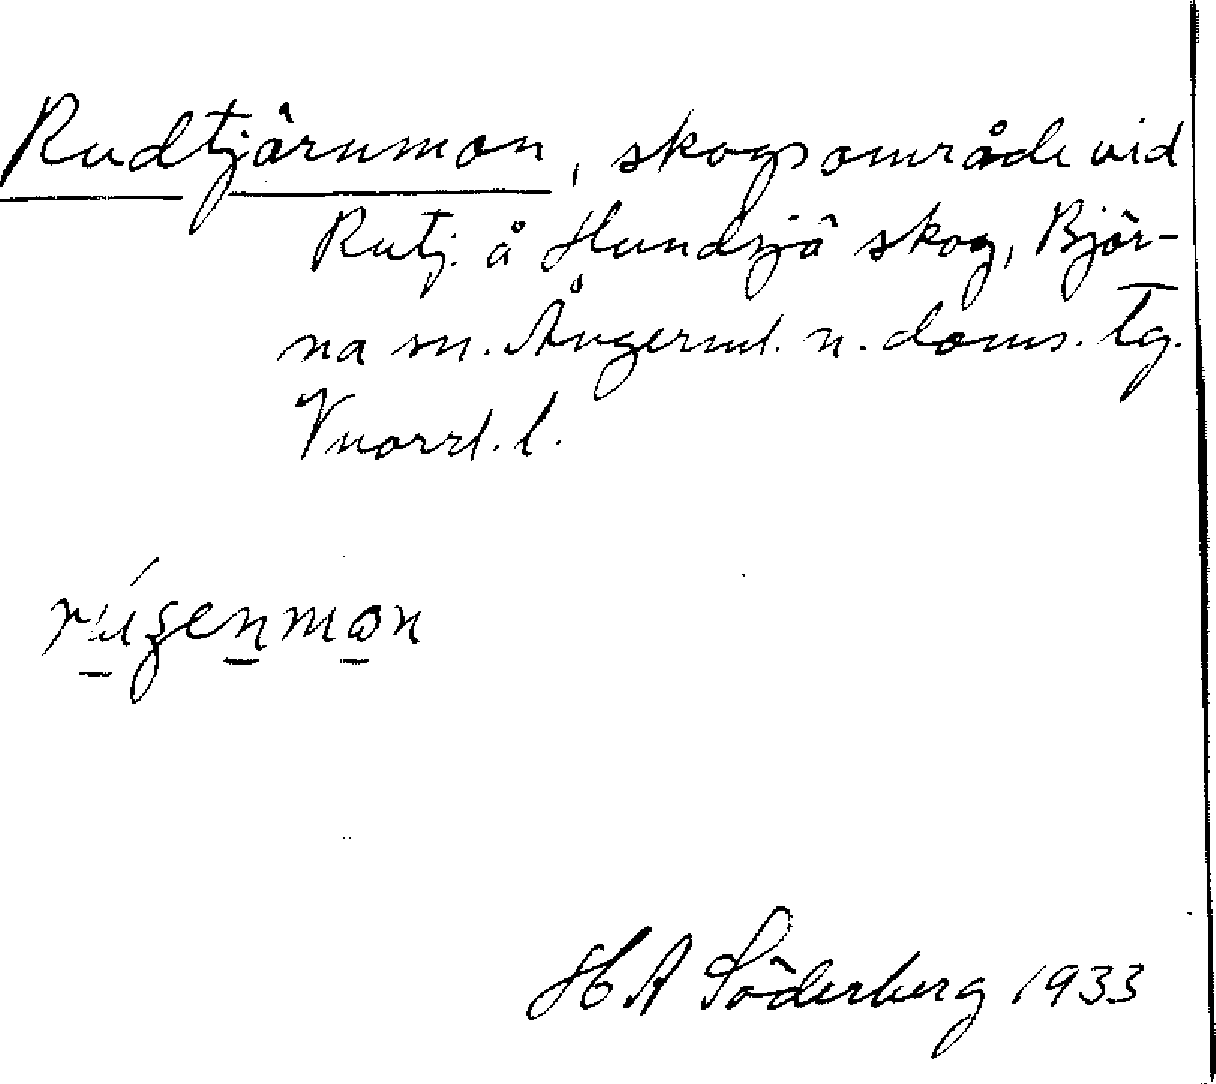 Rudtjärnmon, skogsområde vid
Rutj. å Hundsjö skog, Björ-
na sn. Ångerml. n. doms. lg.
Vnorrl. l.
H A Söderberg 1933